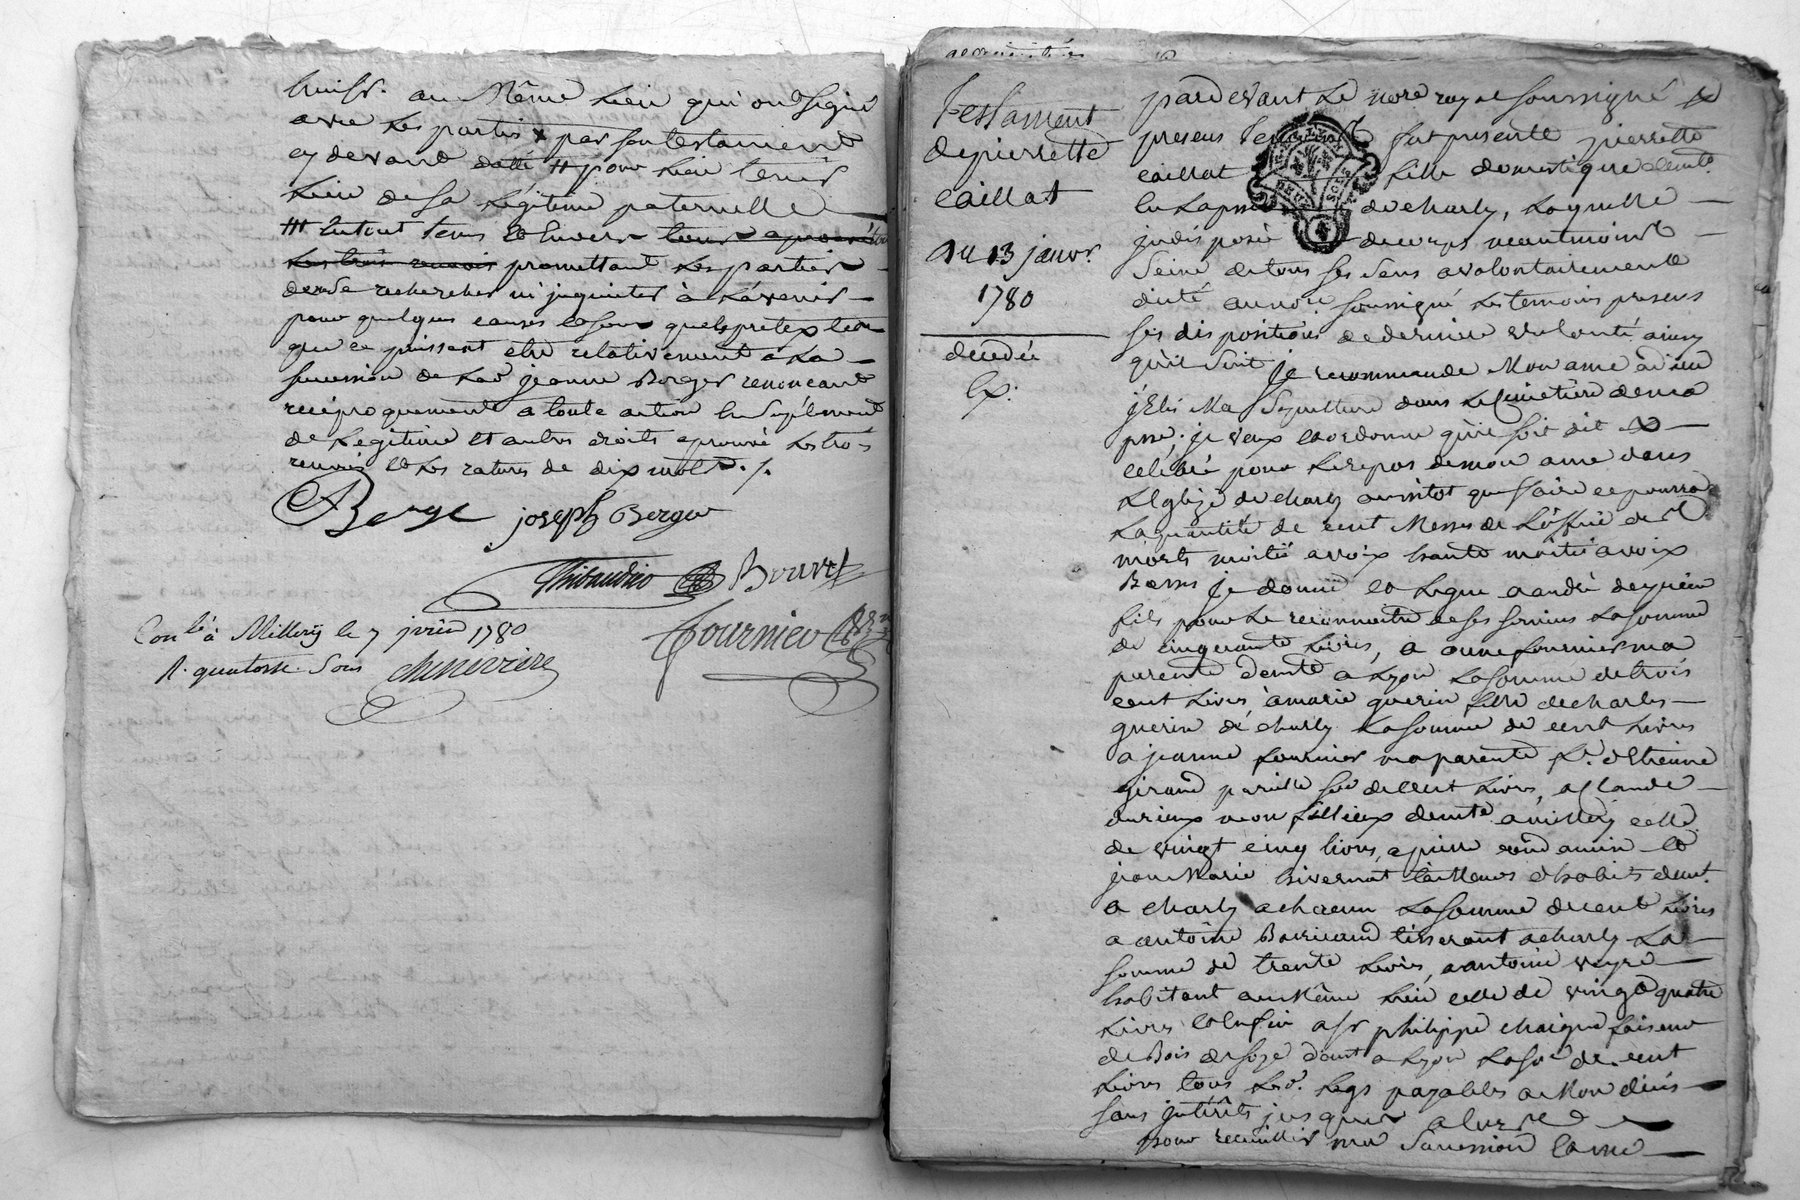 au Même Lieu qui ont signé
avec Les parties x par son testament
cy devant datté # pour Lieu tenir
Lieu de sa Légitime paternelle
# en tout tems et
promettant Les parties
de ne se rechercher ni inquieter à L'avenir
pour quelques causes et sous quelq pretexte
que ce puissent être relativement à La
succession de Lad jeanne Berger renoncant
reciproquement a toute action en suplément
de Legitime et autres droits aprouvé Les trois
renvois et Les ratures de dix mots ./.
Berger joseph Berger
Thibaudier Bouvet
Fournier
Conlé à Millery le 7 jvier 1780
R. quatorse Sous Cheneviere
Testament
de pierrette
Caillat
Du 13 janvr.
1780
decedée
Ex:
pardevant Le nore royal soussigné &
presens fut presente pierrette
Caillat fille domestique demte
en La psse de Charly, Laquelle
indisposée de corps neantmoins
Seine de tous ses sens a volontairement
dicté au nore. soussigné Les temoins presens
ses dispositions de derniere volonté ainsy
qu'il suit je recommande Mon ame a dieu
j'Elis Ma Sepulture dans Le Cimetiere de ma
psse. je veux et ordonne qu'il soit dit &
celebré pour Le repos de mon ame dans
L'Eglize de Charly aussitot que faire ce pourra
La quantité de cent Messes de L'office des
morts moitié a voix haute moitié a voix
Basse je donne et Legue a andré
fils pour Le reconnoitre de ses services La somme
de cinquante Livres, a anne fournier ma
parente demte a Lyon La somme de trois
cent Livres, a marie guerin fille de charles
guerin de charly La somme de cent Livres
a jeanne fournier ma parente fe. d'Etienne
girand pareille soe de cent Livres, a Claude
durieux mon fillieux demte. a millery celle
de vingt cinq livres, a pierre et
jean Marie hivernat tailleurs d'habits demt.
a Charly a chacun La somme de cent Livres
a antoine Barricand tisserant a charly La
somme de trente Livres, a antoine veyre
habitant au Même Lieu celle de vingt quatre
Livres et enfin a Sr philippe faiseur
de Bois de soye demt a Lyon La soe de cent
Livres tous Lesd. Legs payables a Mon décès
sans intérêts jusques a lors
pour recueillir ma Succession et me